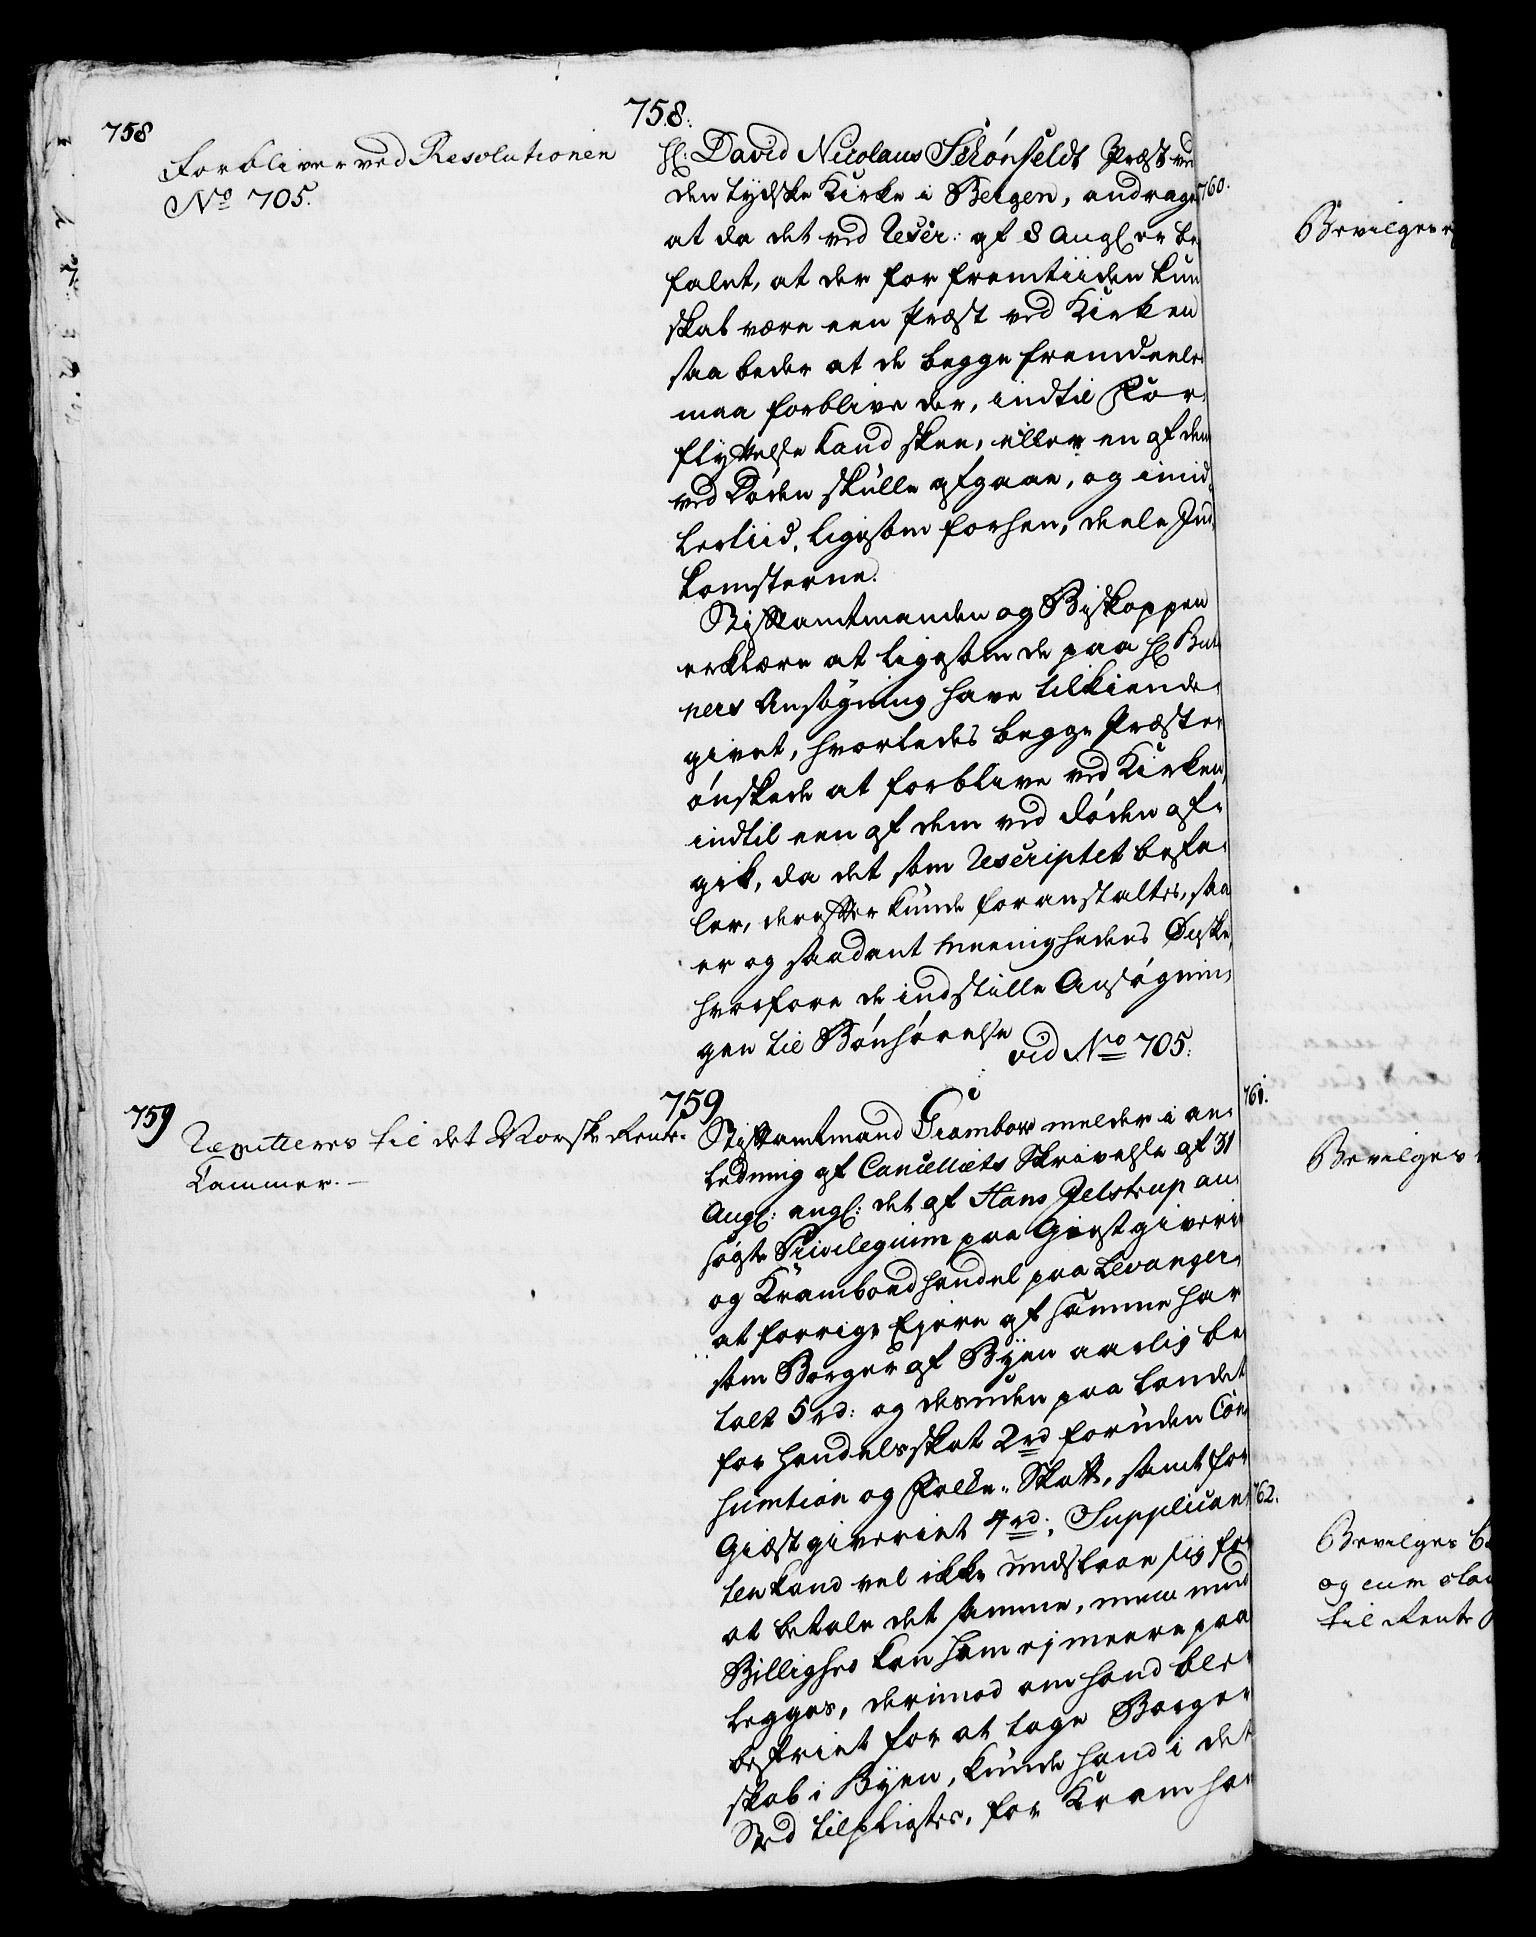 758
Forbliver ved Resolutionen
No 705.
758:
H: David Nicolaus Schönfeldt Præst ved
den tydske Kirke i Bergen, andrager
at da det ved Rescr: af 8 Aug: er be
falet, at der for fremtiiden kun
skal være een Præst ved Kirken
saa beder at de begge fremdeeles
maa forblive der, indtil For
flyttelse kand skee, eller en af dem
ved Døden skulle afgaae, og imid
lertiid, ligesom forhen, deele Ind
komsterne.
Stiftamtmanden og Biskoppen
erklære at ligesom de paa H:
ners Ansøgning have tilkiende
givet, hvorledes begge Præster
ønskede at forblive ved Kirken,
indtil een af dem ved døden af
gik, da det som Rescriptet befa
ler, derefter kunde foranstaltes, saa
er og saadant Meenighedens Ønske,
hvorfore de indstille Ansøgnin
gen til Bønhørelse
vid No 705.
759
Remitteres til det Norske Rente
Cammer.
759
Stiftamtmand Trambow melder i an
ledning af Cancelliets Skrivelse af 31
Aug: ang: det af Hans Jelstrup an
søgte Privilegium paa Giestgiverie
og Krambod handel paa Levanger,
at forrige Ejere af samme har
som Borger af Byen aarlig be
talt 5 rd: og desuden paa Landet
for handels skat 2 rd foruden Con
sumtion og Folke-Skatt, samt for
Giæstgiveriet 4 rd:, Supplican
ten kand vel ikke undslaae sig for
at betale det samme, men med
Billighed kan ham ej meere paa
legges, derimod om hand blev
befriet for at tage Borger
skab i Byen, kunde hand i det
Sted tilpligtes, for Kram han
760.
Bevilges
761.
Bevilges
762.
Bevilges
og cum
til Rente